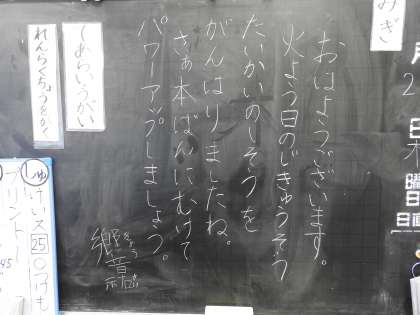 みぎ
おはようございます。
火よう日のじきゅうそう
たいかいのしそうを
がんばりましたね。
さあ本ばんにむけて
パワーアップしましょう。
きょう
てあらいうがい
れんらくちょうをかく
しゅ
けいス25〇つけも
プリント
45
月
2
日
曜日
日直